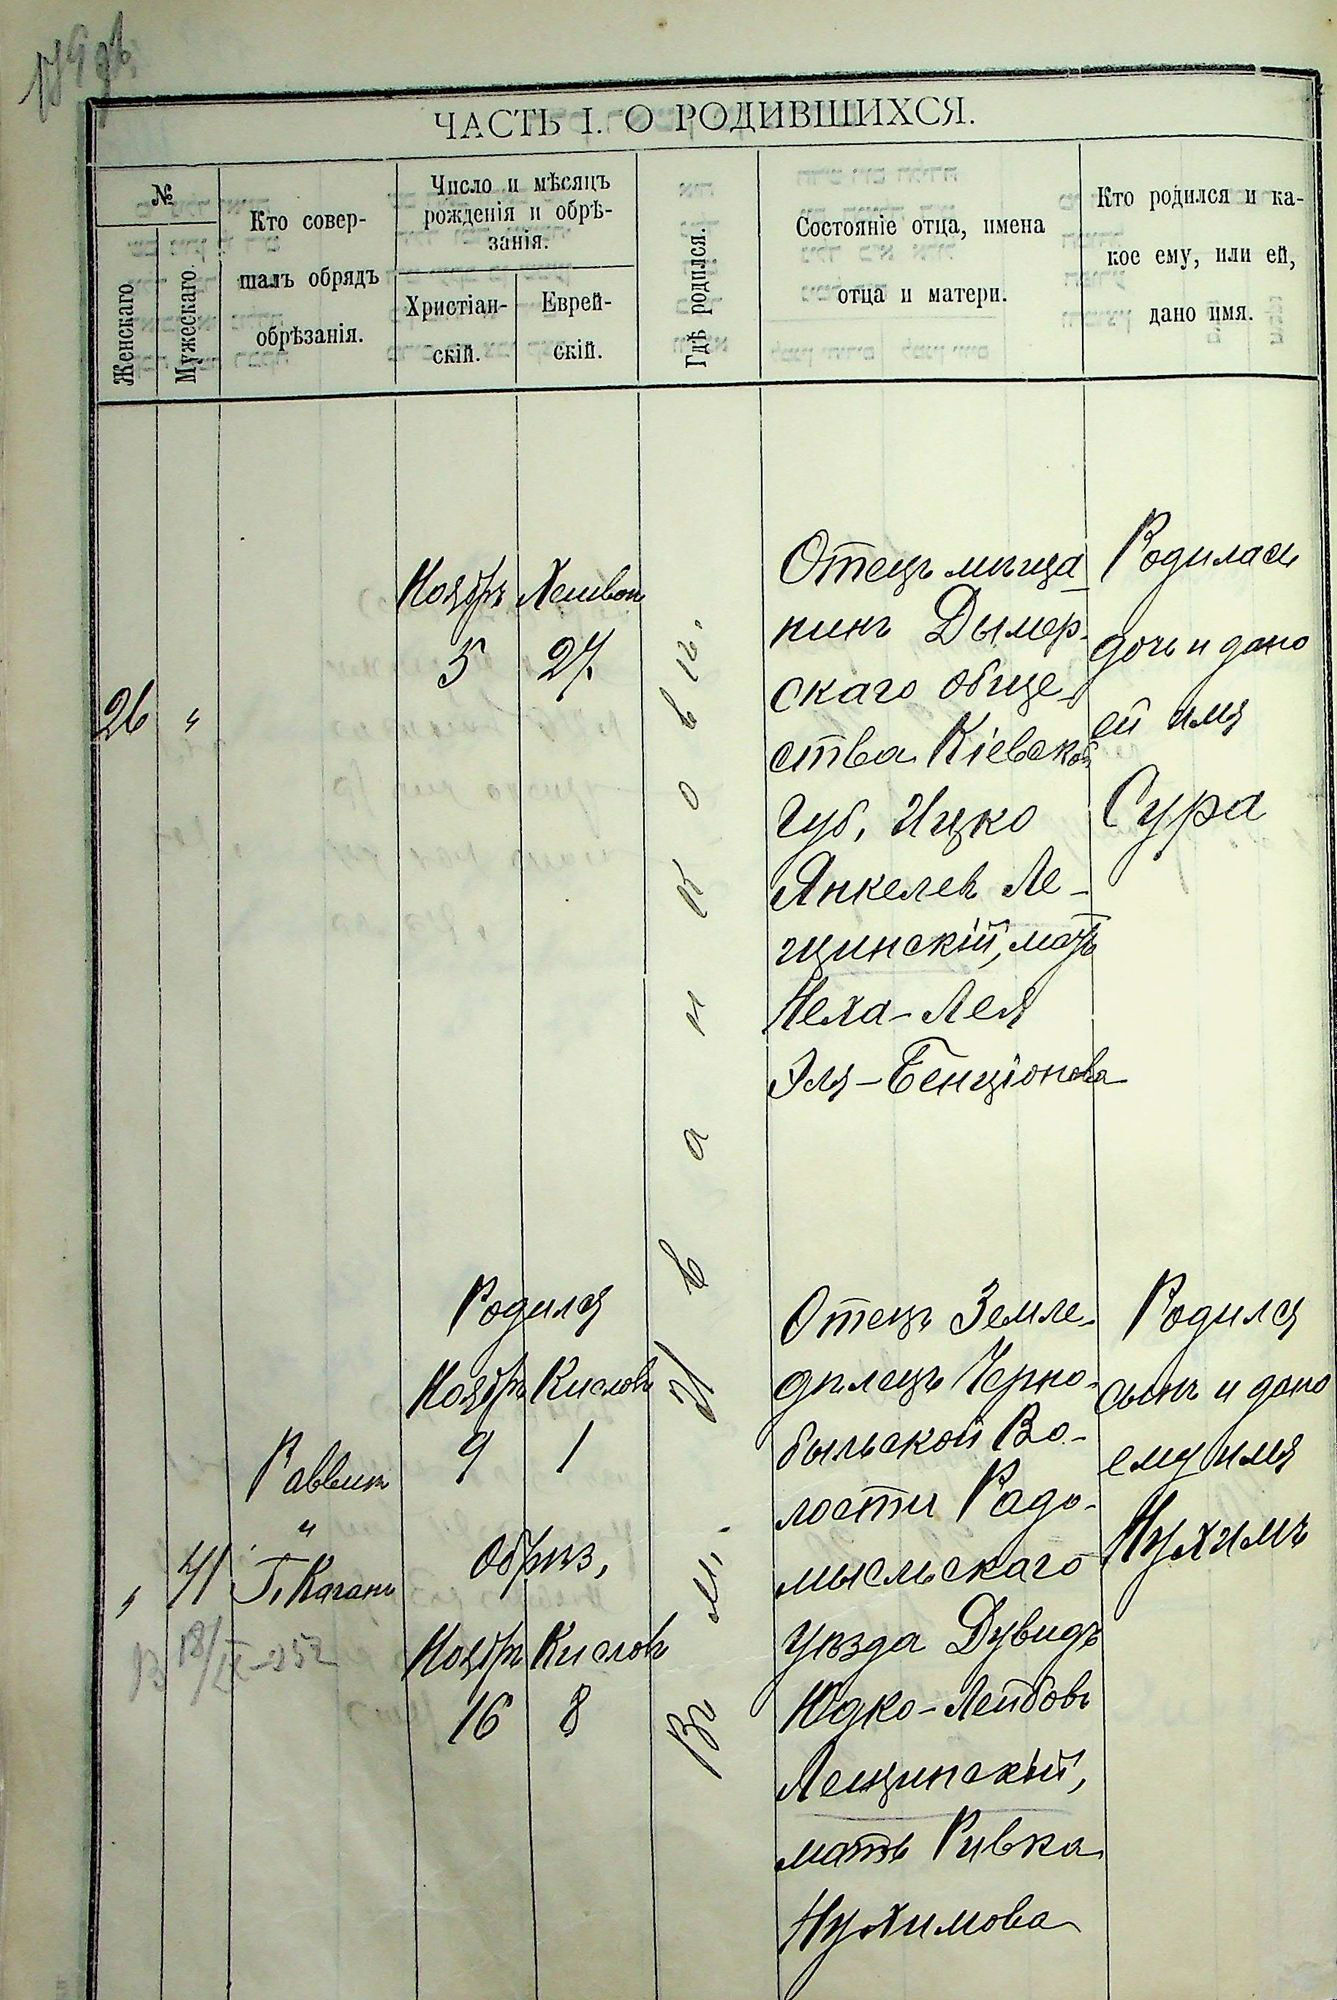 ЧАСТЬ I. О РОДИВШИХСЯ.
№
Женскаго.
Мужескаго.
Кто совер-
шалъ обрядъ
обрѣзанія.
Число и мѣсяцъ
рожденія и обрѣ-
занія.
Христіан-
скій.
Еврей-
скій.
Гдѣ родился.
Состояніе отца, имена
отца и матери.
Кто родился и ка-
кое ему, или ей,
дано имя.
26 "
Ноябрь
5
Хешвон
27.
Въ м. Иванковѣ.
Отецъ мѣща
нинъ Дымер-
скаго обще-
ства Кіевской
губ. Ицко
Янкелев Ле-
щинскій, мать
Неха-Лея
Эля-Бенціонова
Родилась
дочь и дано
ей имя
Сура
" 41
Раввин
"
Г. Каганъ
Родился
Ноябрь Кислов
9 1
Обрѣз.
Ноябрь Кислов
16 8
Отецъ Земле-
дѣлецъ Черно-
быльской Во-
лости Радо-
мысльскаго
уѣзда Дувидъ
Юдко-Лейбовъ
Лещинскій,
мать Ривка
Нухимова
Родился
сынъ и дано
ему имя
Нухимъ